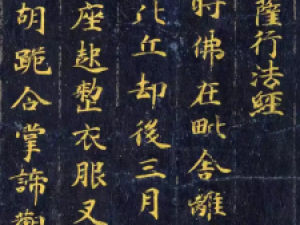 薩行法經
時佛在毗舍離
比丘却後三月
座起整衣服叉
胡跪合掌諦